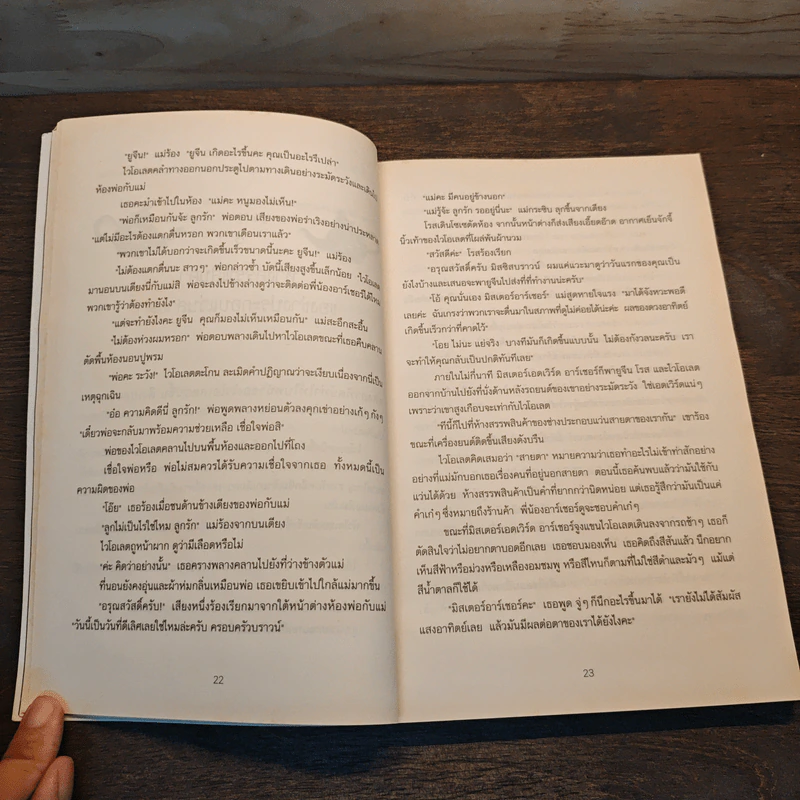 "ยูจีน!" แม่ร้อง "ยูจีน เกิดอะไรขึ้นคะ คุณเป็นอะไรรึเปล่า"
ไวโอเลตคลำทางออกนอกประตูไปตามทางเดินอย่างระมัดระวังและเดินไป
ห้องพ่อกับแม่
เธอคะมำเข้าไปในห้อง "แม่คะ หนูมองไม่เห็น!"
"พ่อก็เหมือนกันจ้ะ ลูกรัก" พ่อตอบ เสียงของพ่อร่าเริงอย่างน่าประหลาด
"แต่ไม่มีอะไรต้องแตกตื่นหรอก พวกเขาเตือนเราแล้ว"
"พวกเขาไม่ได้บอกว่าจะเกิดขึ้นเร็วขนาดนี้นะคะ ยูจีน!" แม่ร้อง
"ไม่ต้องแตกตื่นนะ สาวๆ" พ่อกล่าวซ้ำ บัดนี้เสียงสูงขึ้นเล็กน้อย "ไวโอเลต
มานอนบนเตียงนี่กับแม่สิ พ่อจะลงไปข้างล่างดูว่าจะติดต่อพี่น้องอาร์เชอร์ได้ไหม
พวกเขารู้ว่าต้องทำยังไง"
"แต่จะทำยังไงคะ ยูจีน คุณก็มองไม่เห็นเหมือนกัน" แม่สะอึกสะอื้น
"ไม่ต้องห่วงผมหรอก" พ่อตอบพลางเดินไปหาไวโอเลตขณะที่เธอคืบคลาน
ตัดพื้นห้องนอนปูพรม
"พ่อคะ ระวัง!" ไวโอเลตตะโกน ละเมิดคำปฏิญาณว่าจะเงียบเนื่องจากนี่เป็น
เหตุฉุกเฉิน
"อ๋อ ความคิดดีนี่ ลูกรัก!" พ่อพูดพลางหย่อนตัวลงคุกเข่าอย่างเก้ๆ กังๆ
"เดี๋ยวพ่อจะกลับมาพร้อมความช่วยเหลือ เชื่อใจพ่อสิ"
พ่อของไวโอเลตคลานไปบนพื้นห้องและออกไปที่โถง
เชื่อใจพ่อหรือ พ่อไม่สมควรได้รับความเชื่อใจจากเธอ ทั้งหมดนี้เป็น
ความผิดของพ่อ
"โอ๊ย" เธอร้องเมื่อชนด้านข้างเตียงของพ่อกับแม่
"ลูกไม่เป็นไรใช่ไหม ลูกรัก" แม่ร้องจากบนเตียง
ไวโอเลตถูหน้าผาก ดูว่ามีเลือดหรือไม่
"ค่ะ คิดว่าอย่างนั้น" เธอครางพลางคลานไปยังที่ว่างข้างตัวแม่
ที่นอนยังคงอุ่นและผ้าห่มกลิ่นเหมือนพ่อ เธอเขยิบเข้าไปใกล้แม่มากขึ้น
"อรุณสวัสดิ์ครับ!" เสียงหนึ่งร้องเรียกมาจากใต้หน้าต่างห้องพ่อกับแม่
"วันนี้เป็นวันที่ดีเลิศเลยใช่ไหมล่ะครับ ครอบครัวบราวน์"
22
"แม่คะ มีคนอยู่ข้างนอก"
"แม่รู้จ้ะ ลูกรัก รออยู่นี่นะ" แม่กระซิบ ลุกขึ้นจากเตียง
โรสเดินโซเซตัดห้อง จากนั้นหน้าต่างก็ส่งเสียงเอี๊ยดอ๊าด อากาศเย็นจั๊กจี้
นิ้วเท้าของไวโอเลตที่โผล่พ้นผ้านวม
"สวัสดีค่ะ" โรสร้องเรียก
"อรุณสวัสดิ์ครับ มิสซิสบราวน์ ผมแค่แวะมาดูว่าวันแรกของคุณเป็น
ยังไงบ้างและเสนอจะพายูจีนไปส่งที่ที่ทำงานน่ะครับ"
"โอ้ คุณนั่นเอง มิสเตอร์อาร์เชอร์" แม่สูดหายใจแรง "มาได้จังหวะพอดี
เลยค่ะ ฉันเกรงว่าพวกเราจะตื่นมาในสภาพที่ดูไม่ค่อยได้น่ะค่ะ ผลของดวงอาทิตย์
เกิดขึ้นเร็วกว่าที่คาดไว้"
"โอย ไม่นะ แย่จริง บางทีมันก็เกิดขึ้นแบบนั้น ไม่ต้องกังวลนะครับ เรา
จะทำให้คุณกลับเป็นปกติทันทีเลย"
ภายในไม่กี่นาที มิสเตอร์เอดเวิร์ด อาร์เชอร์ก็พายูจีน โรส และไวโอเลต
ออกจากบ้านไปยังที่นั่งด้านหลังรถยนต์ของเขาอย่างระมัดระวัง ใช่เอดเวิร์ดแน่ๆ
เพราะว่าเขาสูงเกือบจะเท่ากับไวโอเลต
"ทีนี้ก็ไปที่ห้างสรรพสินค้าของช่างประกอบแว่นสายตาของเรากัน" เขาร้อง
ขณะที่เครื่องยนต์ติดขึ้นเสียงดังปรื้น
ไวโอเลตคิดเสมอว่า "สายตา" หมายความว่าเธอทำอะไรไม่เข้าท่าสักอย่าง
อย่างที่แม่มักบอกเธอเรื่องคนที่อยู่นอกสายตา ตอนนี้เธอค้นพบแล้วว่ามันใช้กับ
แว่นได้ด้วย ห้างสรรพสินค้าเป็นคำที่ยากกว่านิดหน่อย แต่เธอรู้สึกว่ามันเป็นแค่
คำเก๋ๆ ซึ่งหมายถึงร้านค้า พี่น้องอาร์เชอร์ดูจะชอบคำเก๋ๆ
ขณะที่มิสเตอร์เอดเวิร์ด อาร์เชอร์จูงแขนไวโอเลตเดินลงจากรถช้าๆ เธอก็
ตัดสินใจว่าไม่อยากตาบอดอีกเลย เธอชอบมองเห็น เธอคิดถึงสีสันแล้ว นึกอยาก
เห็นสีฟ้าหรือม่วงหรือเหลืองอมชมพู หรือสีไหนก็ตามที่ไม่ใช่สีดำและมัวๆ แม้แต่
สีน้ำตาลก็ใช้ได้
"มิสเตอร์อาร์เชอร์คะ" เธอพูด จู่ๆ ก็นึกอะไรขึ้นมาได้ "เรายังไม่ได้สัมผัส
แสงอาทิตย์เลย แล้วมันมีผลต่อตาของเราได้ยังไงคะ"
23